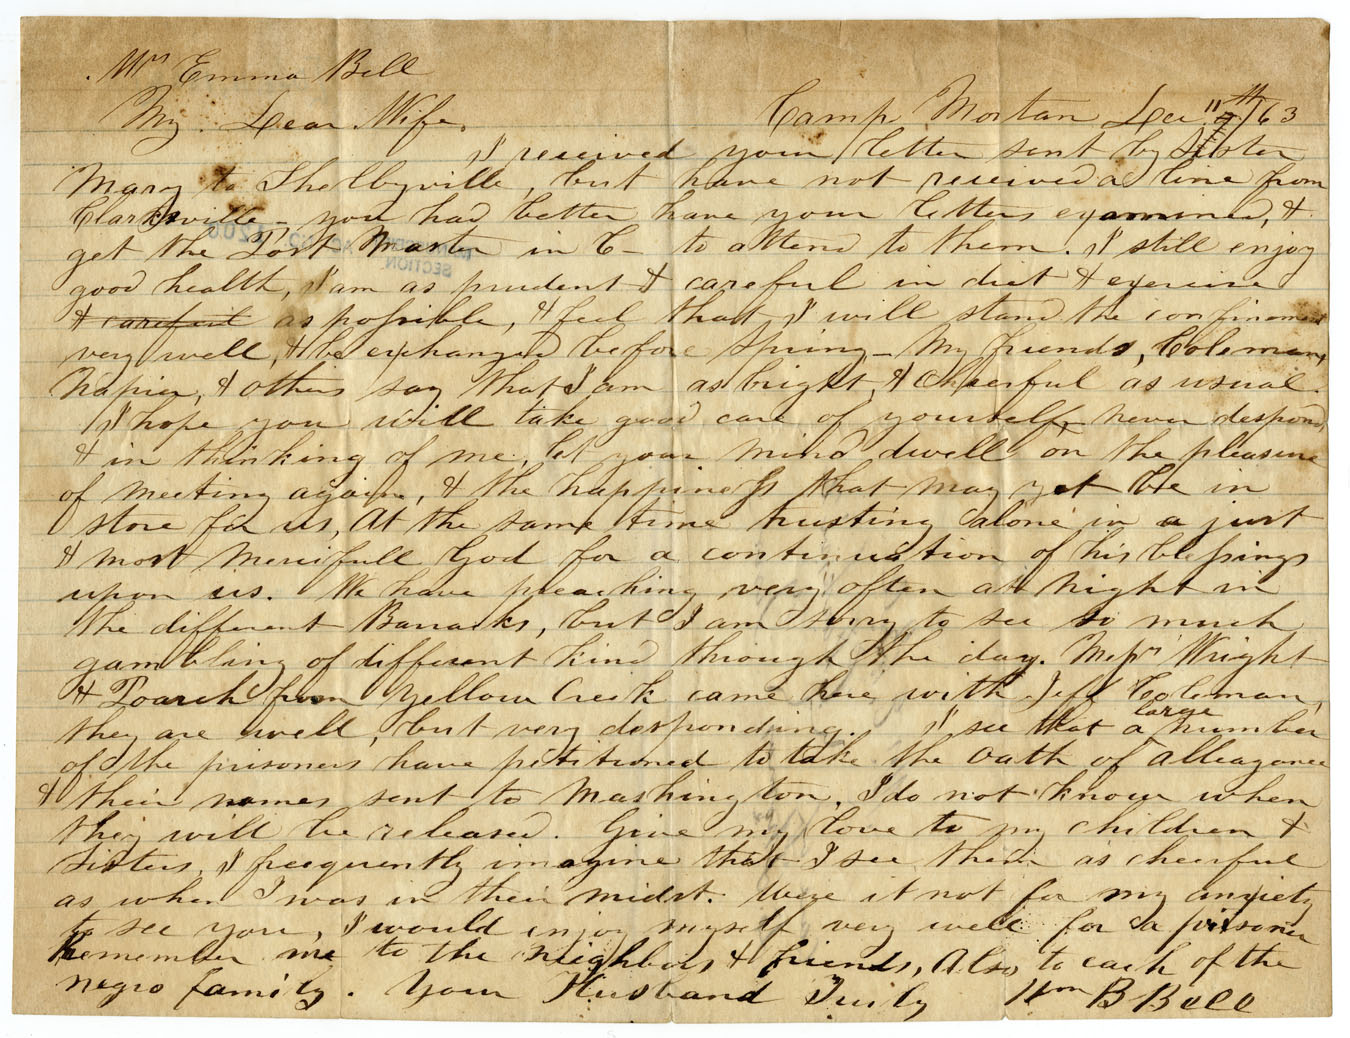 Mrs Emma Bell
My Dear Wife, Camp Mortan Dec 11th/63
I received your letter sent by Sister
Mary to Shelbyville, but have not received a line from
Clarksville - you had better have your letters examined, &
get the Post Master in C- to attend to them. I still enjoy
good health, I am as prudent & careful in diet & exercise
& careful as possible, & feel that I will stand the confinement
very well, & be exchanged before Spring - My friends, Coleman,
Napier, & others say that I am as bright & cheerful as usual.
I hope you will take good care of yourself, never despond,
& in thinking of me, let your mind dwell on the pleasure
of meeting again, & the happiness that may yet be in
store for us, At the same time trusting alone in a just
& most Mercifull God for a continuation of his blessings
upon us. We have preaching very often at Night in
the different Barracks, but I am sorry to see so much
gambling of different kind through the day. Messrs Wright
& Toarch from Yellow Creek came here with Jeff Coleman,
they are well, but very desponding. I see that a large number
of the prisoners have petitioned to take the oath of alleagance
& their names sent to Washington, I do not know when
they will be released. Give my love to my children &
Sisters, I freequently imagine that I see them as cheerful
as when I was in their midst. Were it not for my anxiety
to see you, I would enjoy myself very well for a prisoner
Remember me to the neighbors & friends, Also to each of the
negro family. Your Husband Truly Wm B Bell